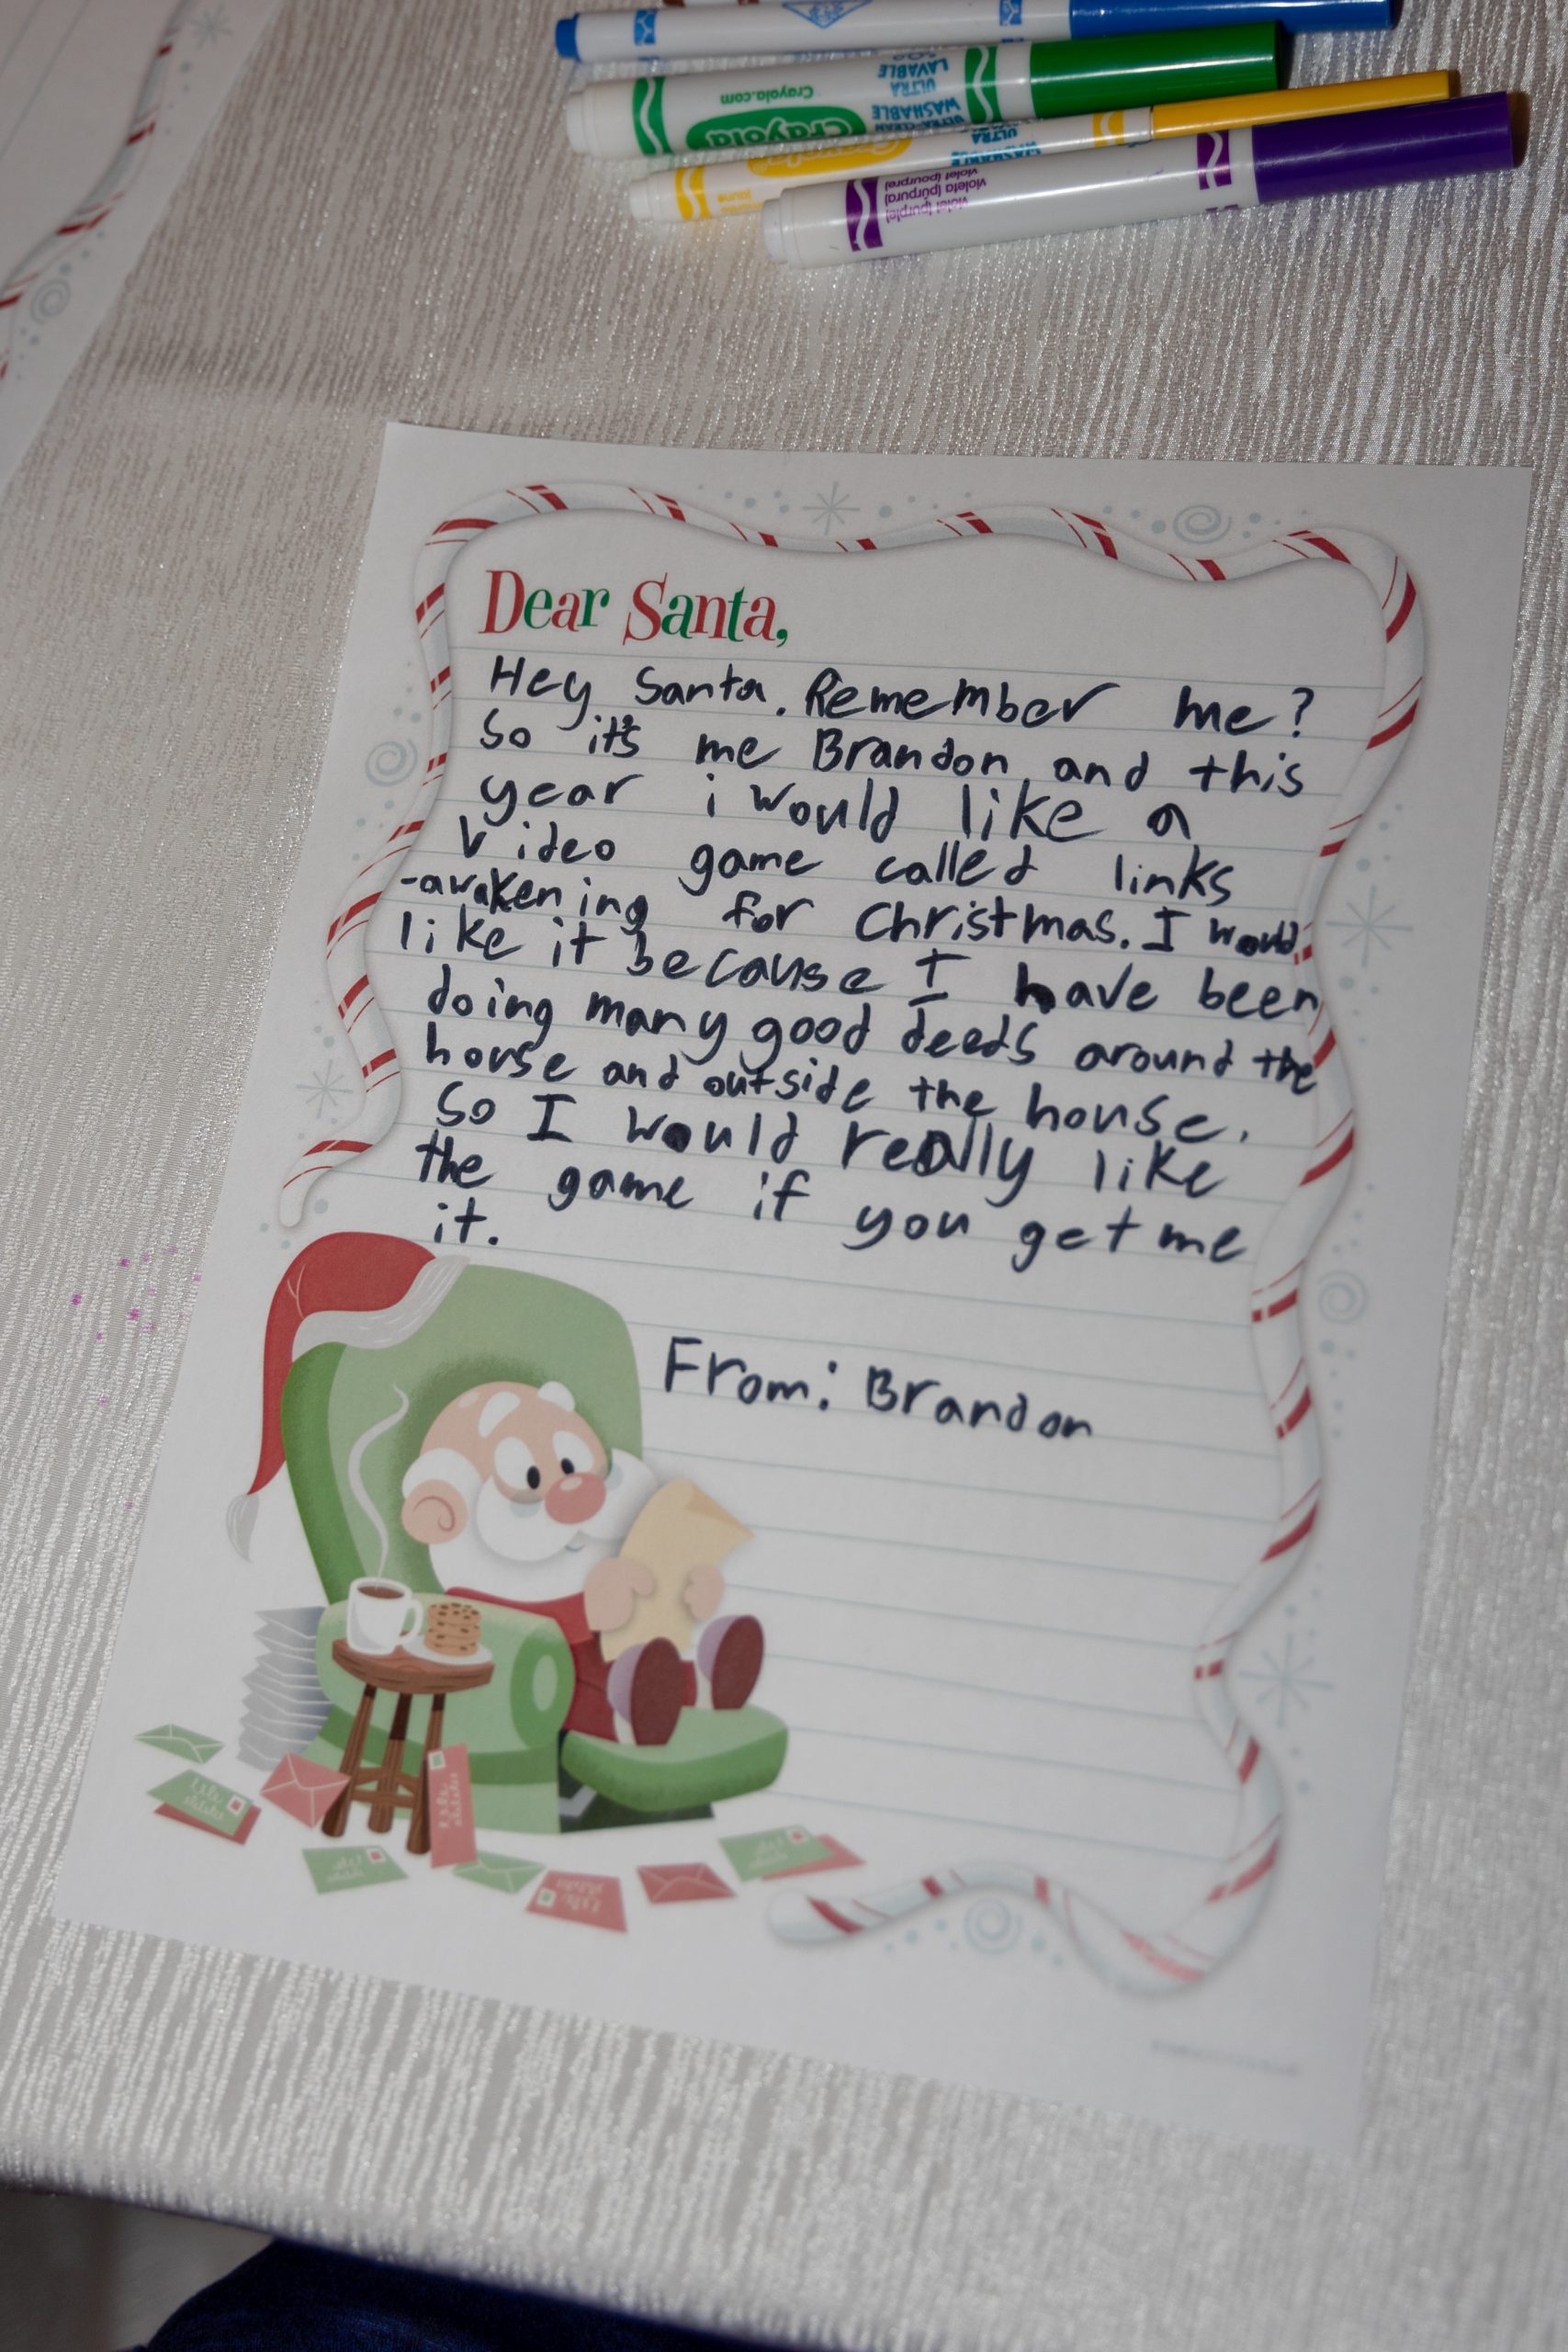 Crayola.com
Crayola
ULTRA
LAVABLE
ULTRA-CLEAN
WASHABLE
ULTRA
WASHABLE
jaune
violet (purple)
violeta (púrpura)
violet (pourpre)
Dear Santa,
Hey Santa. Remember me?
So it's me Brandon and this
year i would like a
Video game called links
-awakening for Christmas. I would
like it because I have been
doing many good deeds around the
house and outside the house.
So I would really like
the game if you get me
it.
From: Brandon